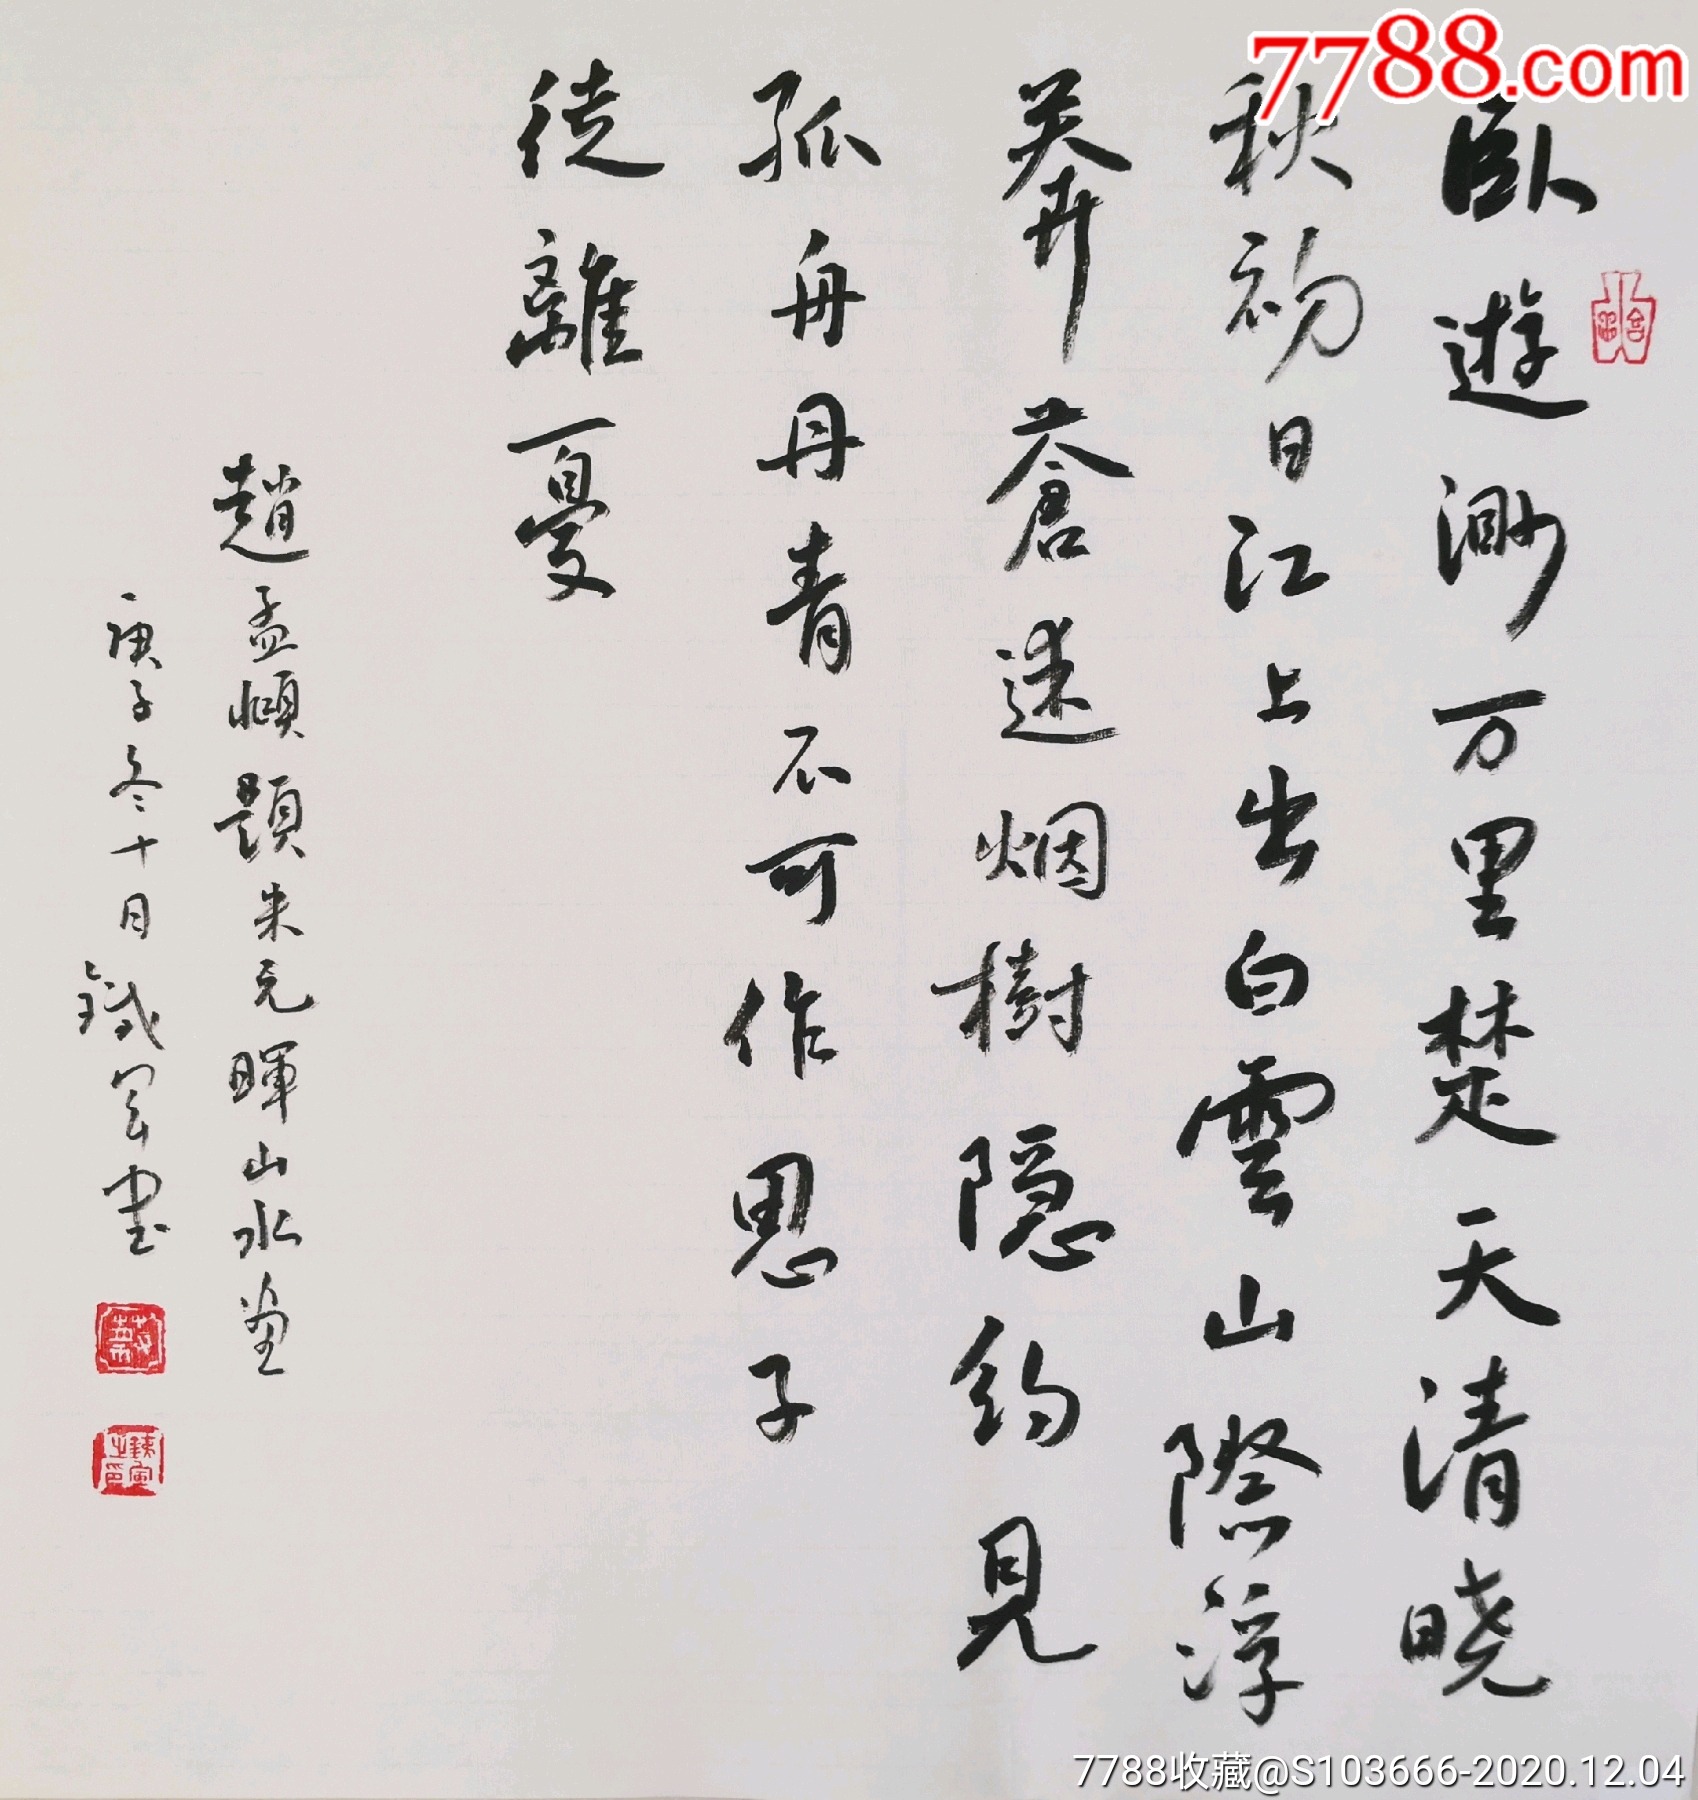 7788.com
臥遊渺万里楚天清晓
秋初日江上出白雲山際浮
莽蒼迷烟樹隠約見
孤舟丹青不可作思子
徒離憂
趙孟頫題朱元暉山水画
庚子冬十月鐵军書
7788收藏@S103666-2020.12.04